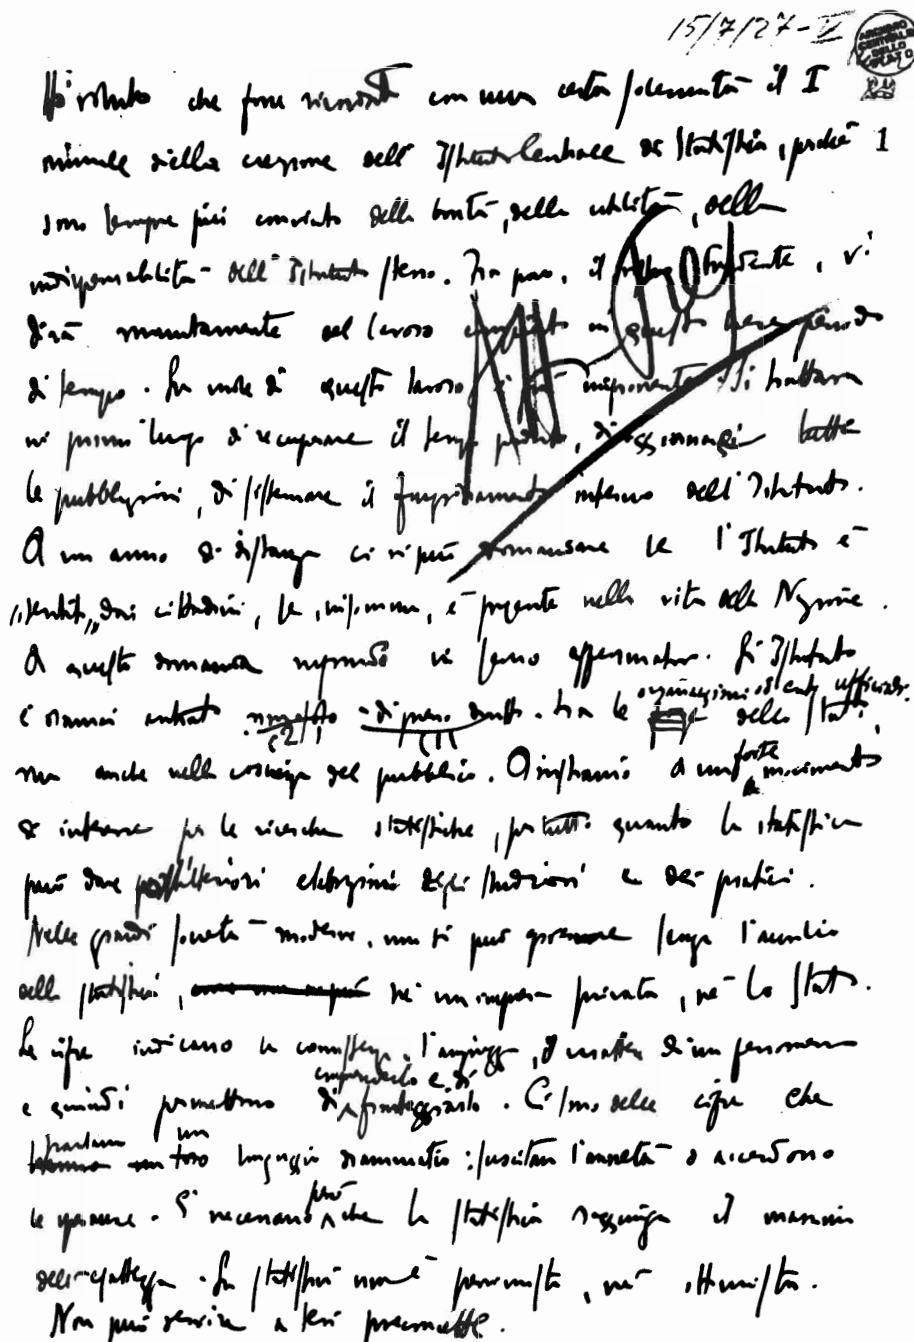 15/7/27 - V
ARCHIVIO CENTRALE DELLO STATO
Ho voluto che fosse ricordata con una certa solennità il I
1
annuale della creazione dell'Istituto Centrale di Statistica, poiché
sono sempre più convinto della bontà, della utilità, della
indispensabilità dell'Istituto stesso. Tra poco, il Presidente, vi
dirà minutamente del lavoro compiuto in questo breve periodo
di tempo. La mole di questo lavoro è imponente. Si trattava
in primo luogo di recuperare il tempo perduto, di aggiornare tutte
le pubblicazioni, di sistemare il funzionamento interno dell'Istituto.
A un anno di distanza ci si può domandare se l'Istituto è
"sentito" dai cittadini, se, insomma, è presente nella vita della Nazione.
A questa domanda rispondo in senso affermativo. L'Istituto
è oramai entrato di pieno diritto tra le organizzazioni ed enti ufficiali dello Stato,
ma anche nella coscienza del pubblico. Assistiamo a un forte movimento
di interesse per le ricerche statistiche, per tutto quanto la statistica
può dare per ulteriori elaborazioni degli studiosi e dei pratici.
Nelle grandi società moderne, non si può governare senza l'ausilio
della statistica, né un'impresa privata, né lo Stato.
Le cifre indicano la consistenza, l'ampiezza, il carattere di un fenomeno
e quindi permettono di comprenderlo e di fronteggiarlo. Ci sono delle cifre che
parlano un loro linguaggio drammatico: suscitano l'ansietà o accendono
le speranze. È necessario però che la statistica raggiunga il massimo
dell'esattezza. La statistica non è pessimista, né ottimista.
Non può servire a tesi preconcette.